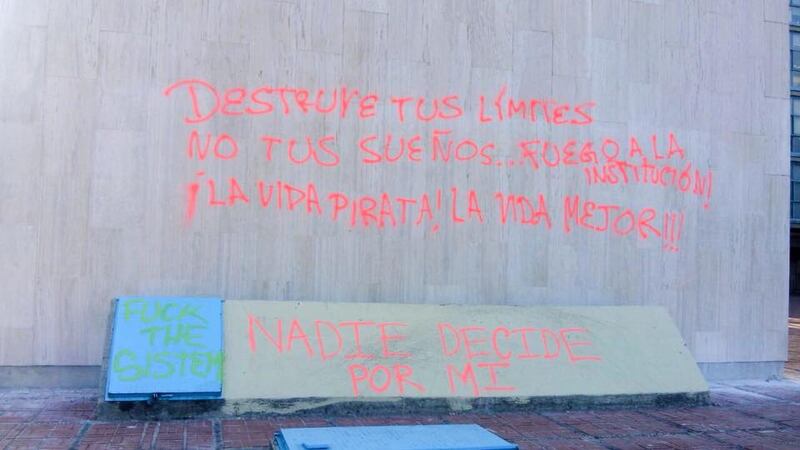 DESTRUYE TUS LÍMITES
NO TUS SUEÑOS... FUEGO A LA
INSTITUCIÓN!
¡LA VIDA PIRATA! LA VIDA MEJOR!!!
FUCK
THE
SISTEM
NADIE DECIDE
POR MI